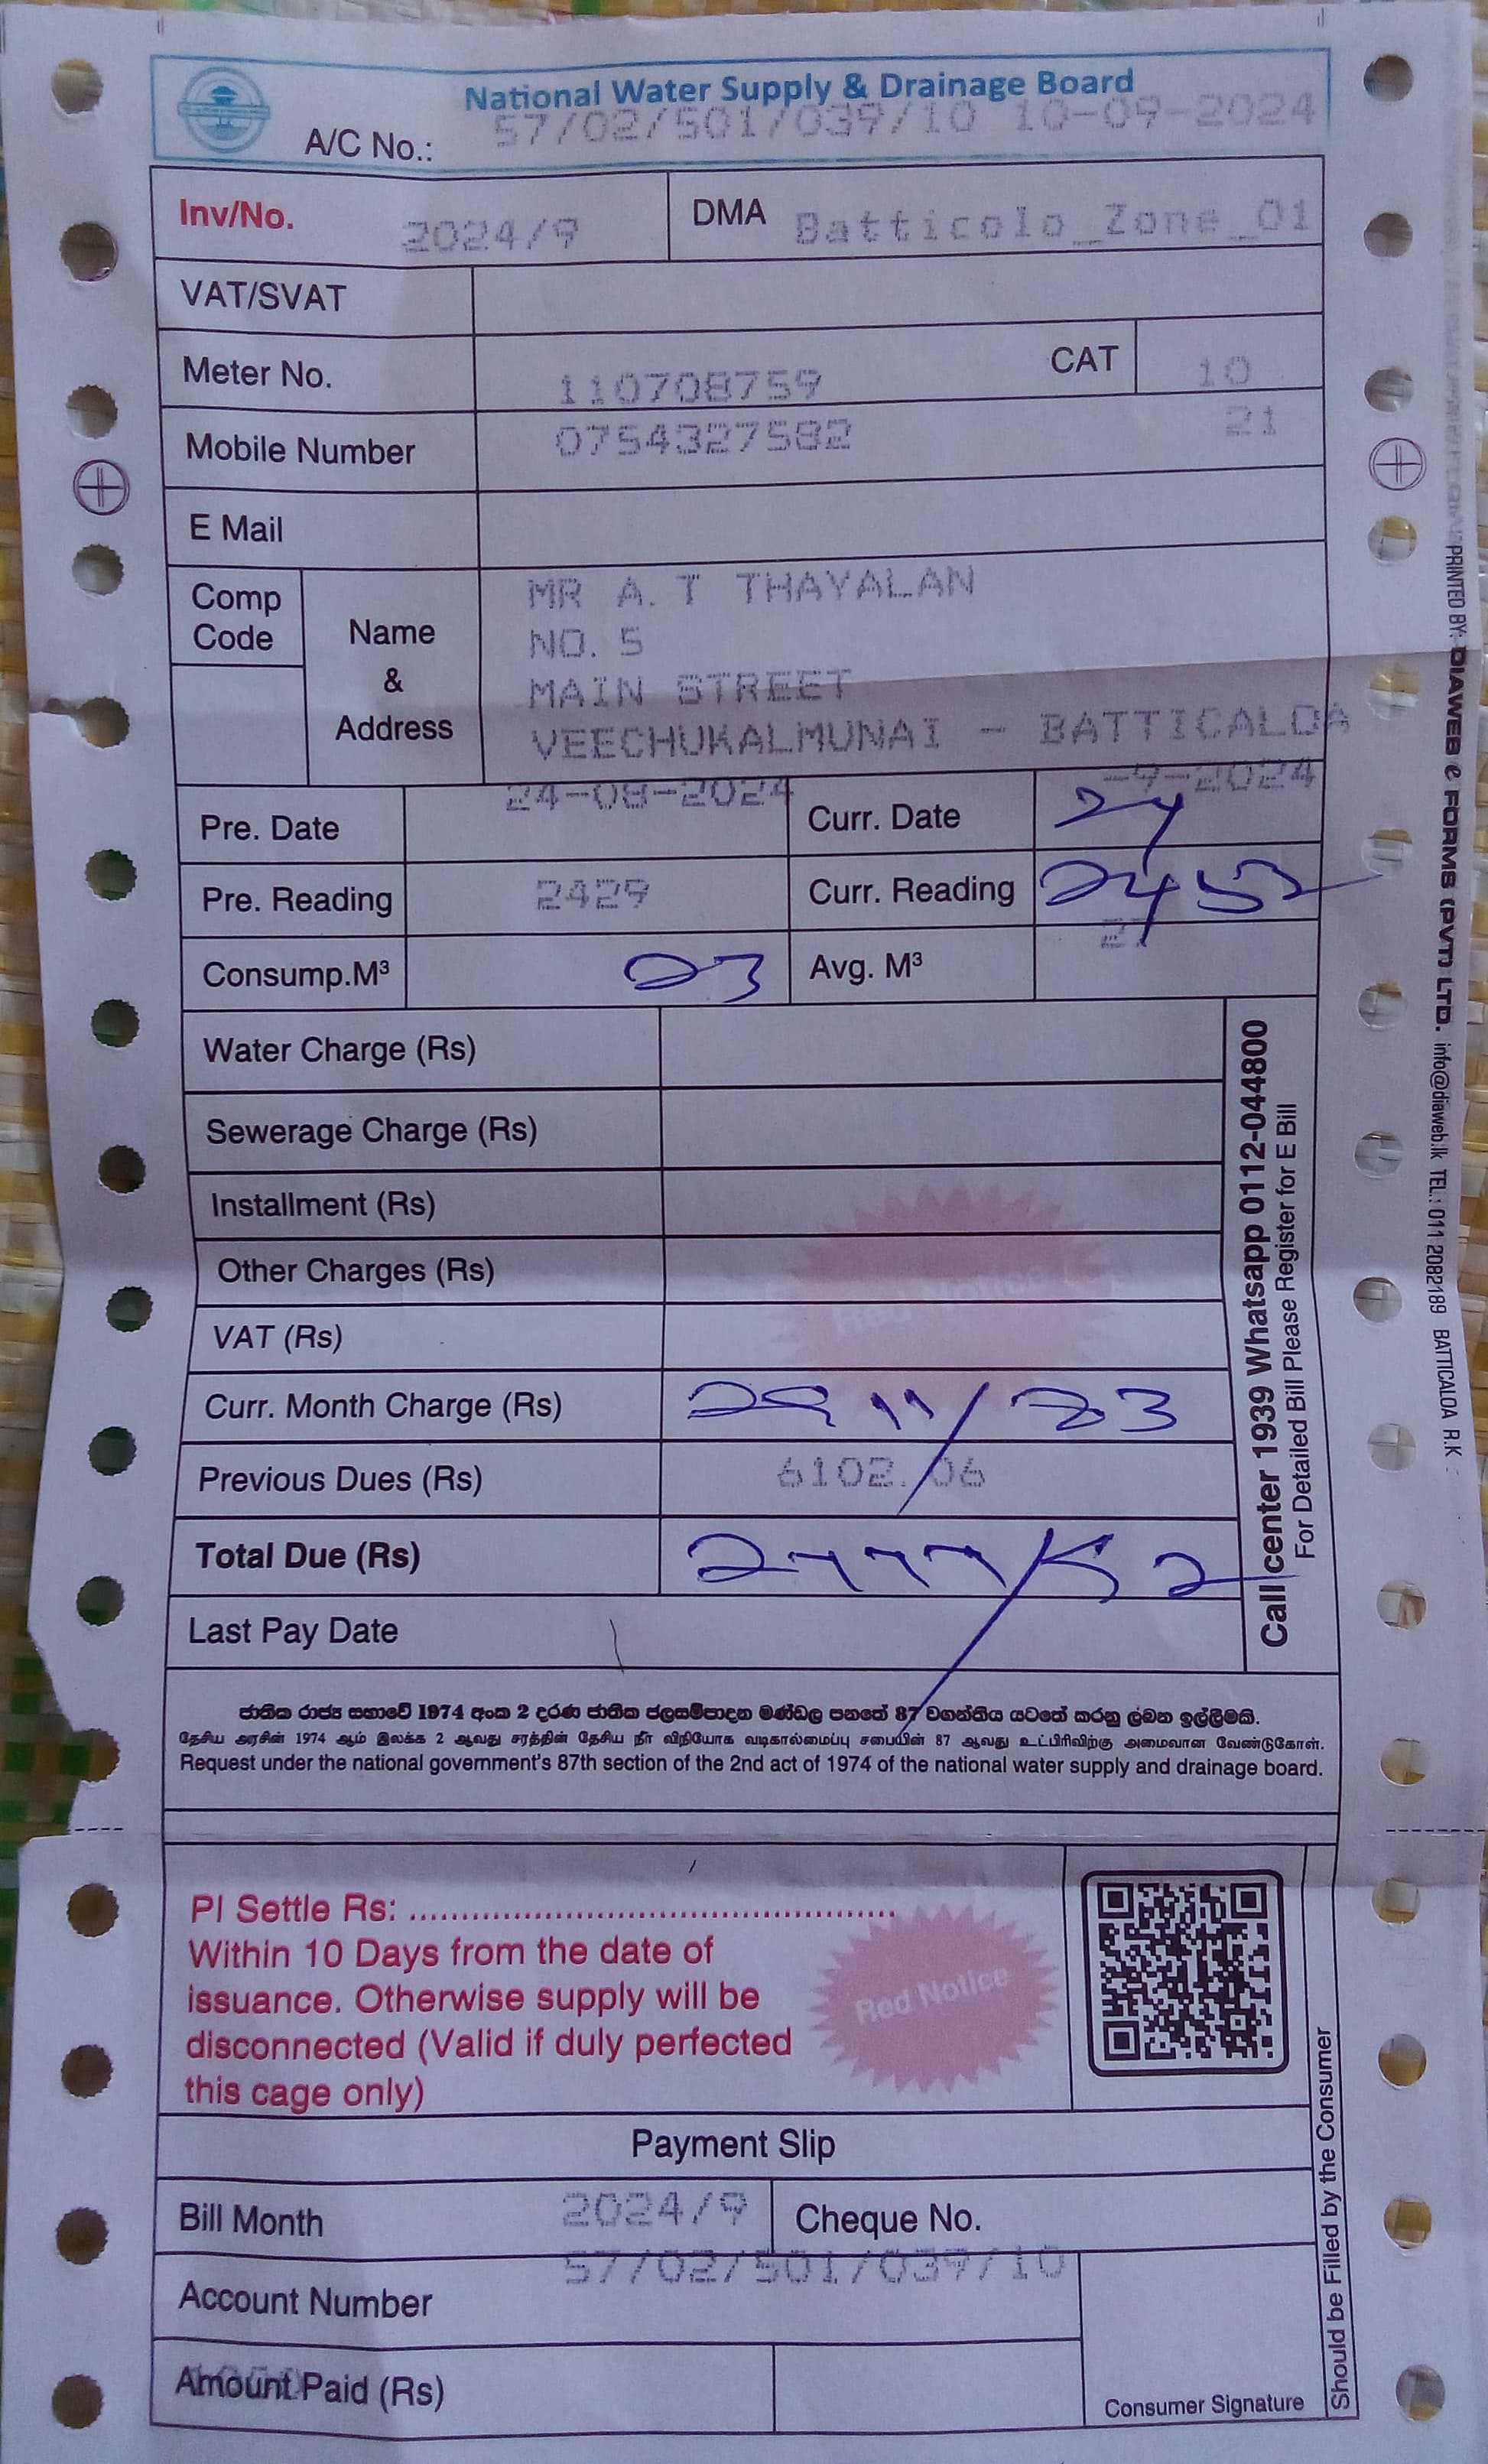 National Water Supply & Drainage Board
A/C No.: 57/02/501/039/10 10-09-2024
Inv/No. 2024/9 DMA Batticolo_Zone_01
VAT/SVAT
Meter No. 110708759 CAT 10
Mobile Number 0754327582 21
E Mail
Comp Code
Name & Address
MR A. T THAYALAN
NO. 5
MAIN STREET
VEECHUKALMUNAI - BATTICALOA
Pre. Date 24-08-2024 Curr. Date 24 -9-2024
Pre. Reading 2429 Curr. Reading
Consump.M³ 23 Avg. M³
Water Charge (Rs)
Sewerage Charge (Rs)
Installment (Rs)
Other Charges (Rs)
VAT (Rs)
Curr. Month Charge (Rs)
Previous Dues (Rs) 6102.06
Total Due (Rs)
Last Pay Date
Call center 1939 Whatsapp 0112-044800
For Detailed Bill Please Register for E Bill
ජාතික රාජ්‍ය සභාවේ 1974 අංක 2 දරණ ජාතික ජලසම්පාදන මණ්ඩල පනතේ 87 වගන්තිය යටතේ කරනු ලබන ඉල්ලීමකි.
தேசிய அரசின் 1974 ஆம் இலக்க 2 ஆவது சரத்தின் தேசிய நீர் விநியோக வடிகாலமைப்பு சபையின் 87 ஆவது உட்பிரிவிற்கு அமைவான வேண்டுகோள்.
Request under the national government's 87th section of the 2nd act of 1974 of the national water supply and drainage board.
PI Settle Rs: ............................................................
Within 10 Days from the date of
issuance. Otherwise supply will be
disconnected (Valid if duly perfected
this cage only)
Red Notice
Payment Slip
Bill Month 2024/9 Cheque No.
Account Number 57/02/501/039/10
Amount Paid (Rs)
Consumer Signature
Should be Filled by the Consumer
PRINTED BY: DIAWEB e FORMS (PVT) LTD. info@diaweb.lk TEL.: 011 2082189 BATTICALOA R.K